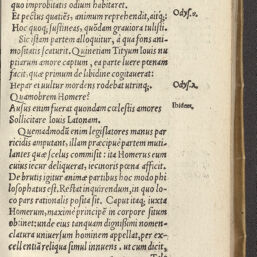 quo improbitatis odium habitaret.
Et pectus quatiẽs, animum reprehendit, aitq́;: Odyſ.υ.
Hoc quoq; ſuſtineas, quõdam grauiora tuliſti.
Sic iſtam partem alloquitur, à qua fons ani-
moſitatis ſcaturit. Quinetiam Tityum louis nu
ptiarum amore captum, ea parte luere pœnam
facit, quæ primum de libidine cogitauerat:
Hepar et uultur mordens rodebat utrinq;. Odyſ.λ.
Quamobrem Homere?
Auſus enim fuerat quondam cœleſtis amores Ibidem.
Sollicitare louis Latonam.
Quemadmodũ enim legiſlatores manus par
ricidis amputant, illam præcipuè partem muti-
lantes quæ ſcelus commiſit: ita Homerus eum
cuius iecur deliquerat, iecinoris pœna afficit.
De brutis igitur animæ partibus hoc modo phi
loſophatus eſt. Reſtat inquirendum, in quo lo-
co pars rationalis poſita ſit. Caput itaq; iuxta
Homerum, maximè principẽ in corpore ſitum
obtinet: unde eius tanquam digniſsimi nomen-
clatura uniuerſum hominem appellat, per ex-
cellentiã reliqua ſimul innuens. ut cum dicit,